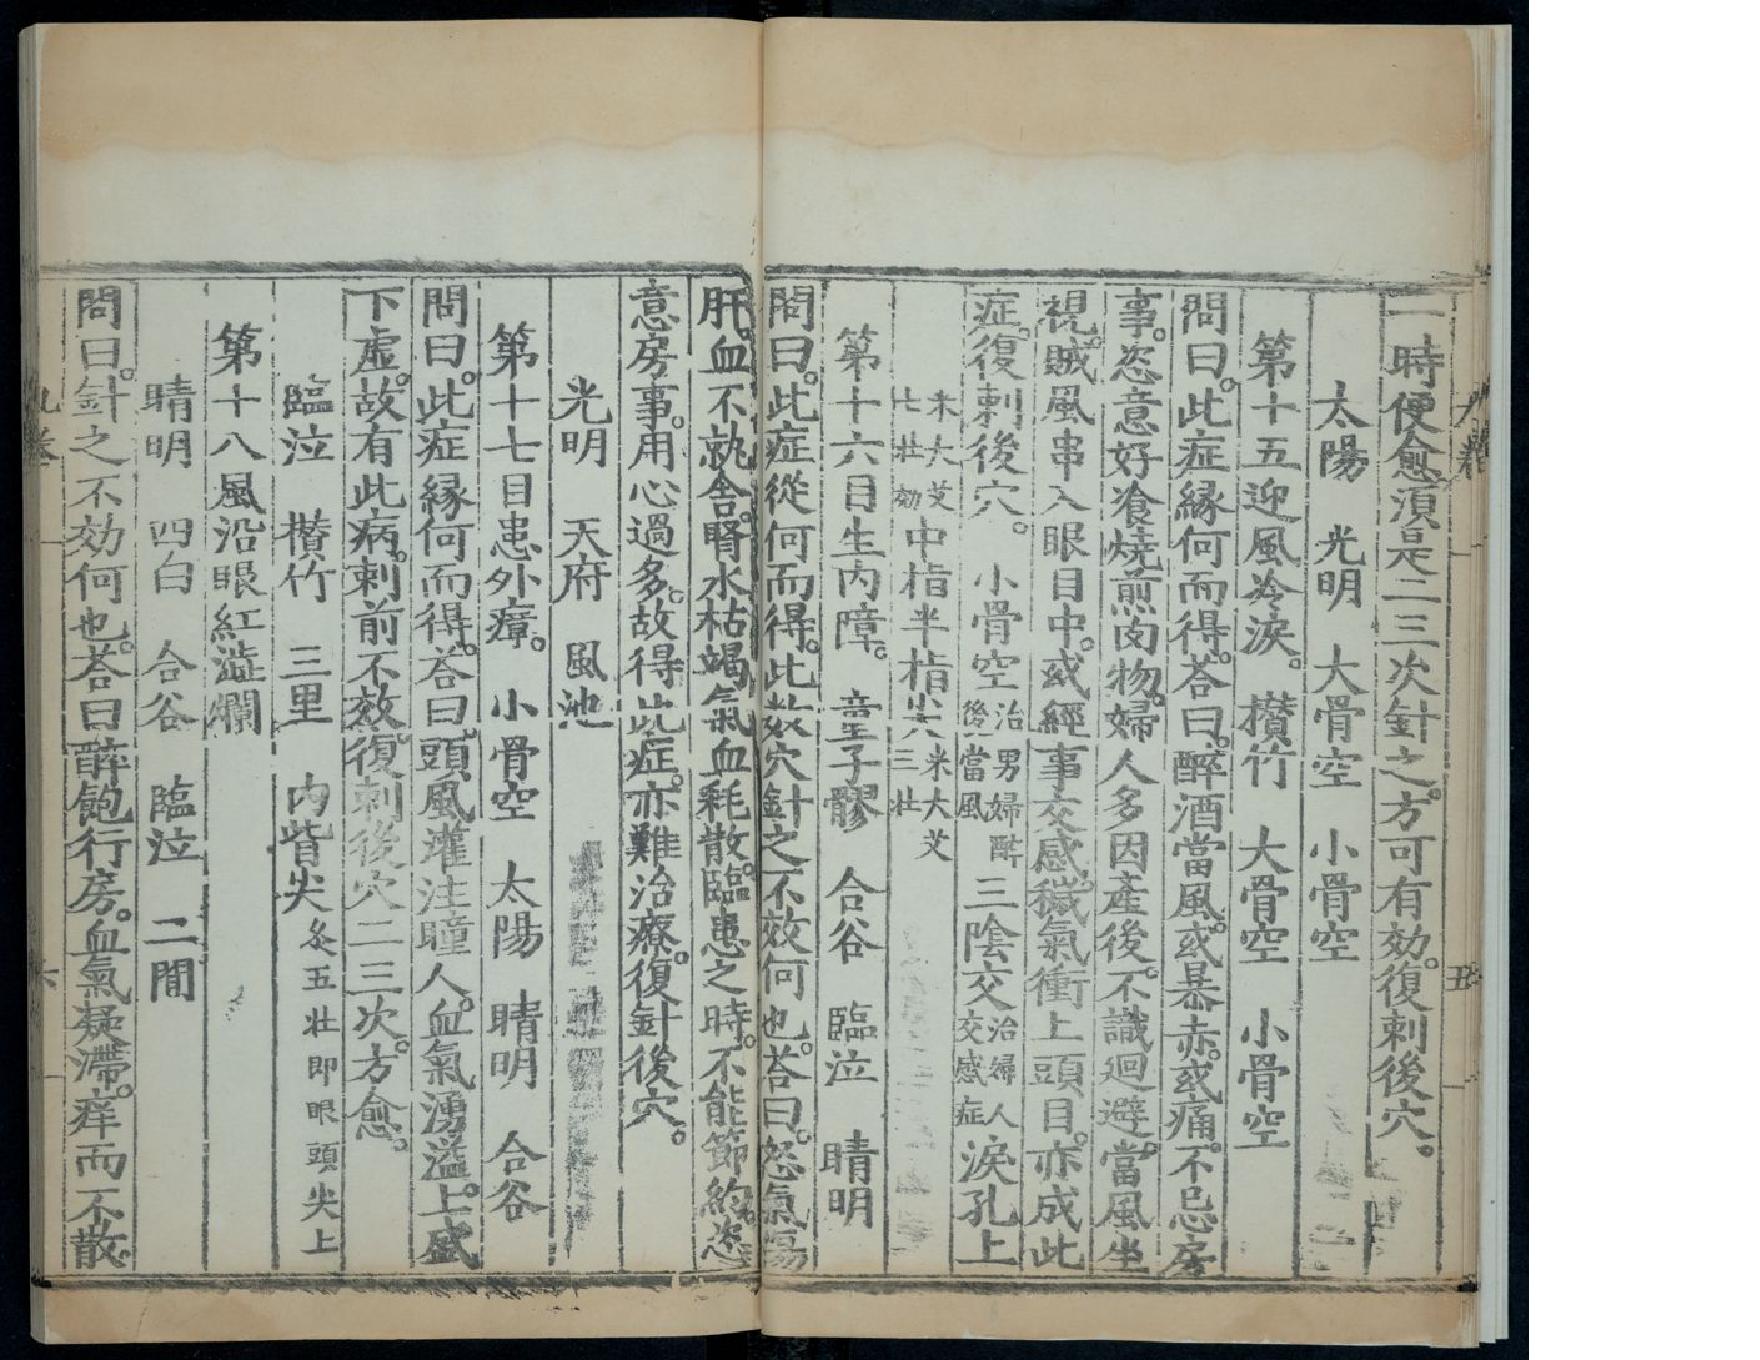 一時便愈須是二三次針之方可有効復刺後穴。
太陽　光明　大骨空　小骨空
第十五迎風冷淚。攅竹　大骨空　小骨空
問曰。此症緣何而得。荅曰。醉酒當風。或暴赤。或痛。不忌房
事。恣意好飡燒煎肉物。婦人多因產後。不識迴避。當風坐
視。賊風串入眼目中。或經事交感。穢氣衝上頭目。亦成此
症。復刺後穴。　小骨空治男婦酔後當風三陰交治婦人交感症淚孔上
米大艾七壯効中指半指尖米大艾三壯
第十六目生內障。　童子髎　合谷　臨泣　睛明
問曰。此症從何而得。此数穴針之不效何也。荅曰。怒氣傷
肝。血不就舍。腎水枯竭。氣血耗散。臨患之時。不能節約。恣
意房事。用心過多。故得此症。亦難治療。復針後穴。
光明　天府　風池
第十七目患外瘴。　小骨空　太陽　睛明　合谷
問曰。此症緣何而得。荅曰。頭風灌注瞳人。血氣湧溢。上盛
下虛。故有此病。刺前不效。復刺後穴二三次。方愈。
臨泣　攅竹　三里　內眥尖灸五壯即眼頭尖上
第十八風沿眼紅澁爛
睛明　四白　合谷　臨泣　二間
問曰。針之不効何也。荅曰醉飽行房。血氣凝滯。痒而不散。